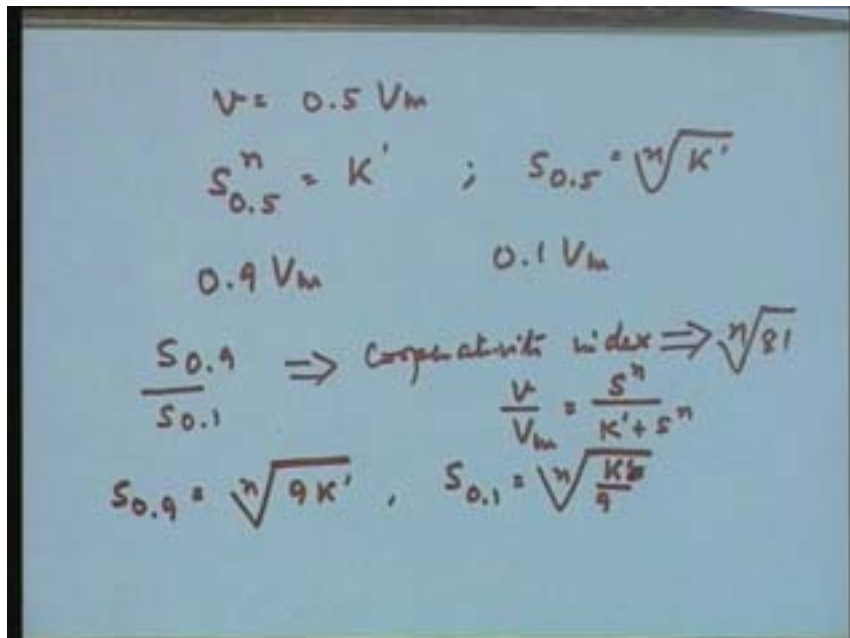 v = 0.5 Vm
S0.5^n = K' ; S0.5 = ⁿ√K'
0.9 Vm 0.1 Vm
S0.9 / S0.1 ⇒ Cooperativity index ⇒ ⁿ√81
v / Vm = S^n / K' + S^n
S0.9 = ⁿ√9K' , S0.1 = ⁿ√K' / 9